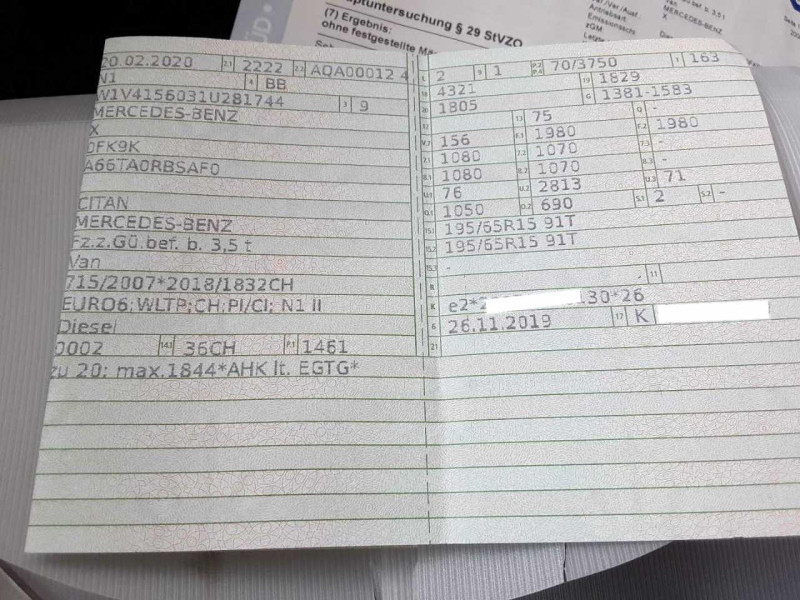 ptuntersuchung § 29 StVZO
(7) Ergebnis:
ohne festgestellte Mä
MERCEDES-BENZ
X
20.02.2020 2.1 2222 2.2 AQA00012 4
N1 4 BB
W1V4156031U281744 3 9
MERCEDES-BENZ
X
0FK9K
A66TA0RBSAF0
CITAN
MERCEDES-BENZ
Fz.z.Gü.bef. b. 3,5 t
Van
715/2007*2018/1832CH
EURO6;WLTP;CH;PI/CI; N1 II
Diesel
0002 14.1 36CH P.1 1461
zu 20: max.1844*AHK lt. EGTG*
L 2 9 1 P.2 P.4 70/3750 T 163
18 4321 19 1829
20 1805 G 1381-1583
12 13 75 Q -
V.7 156 F.1 1980 F.2 1980
7.1 1080 7.2 1070 7.3 -
8.1 1080 8.2 1070 8.3 -
U.1 76 U.2 2813 U.3 71
O.1 1050 O.2 690 S.1 2 S.2 -
15.1 195/65R15 91T
15.2 195/65R15 91T
15.3 -
R - 11
K e2*2 .30*26
6 26.11.2019 17 K
21